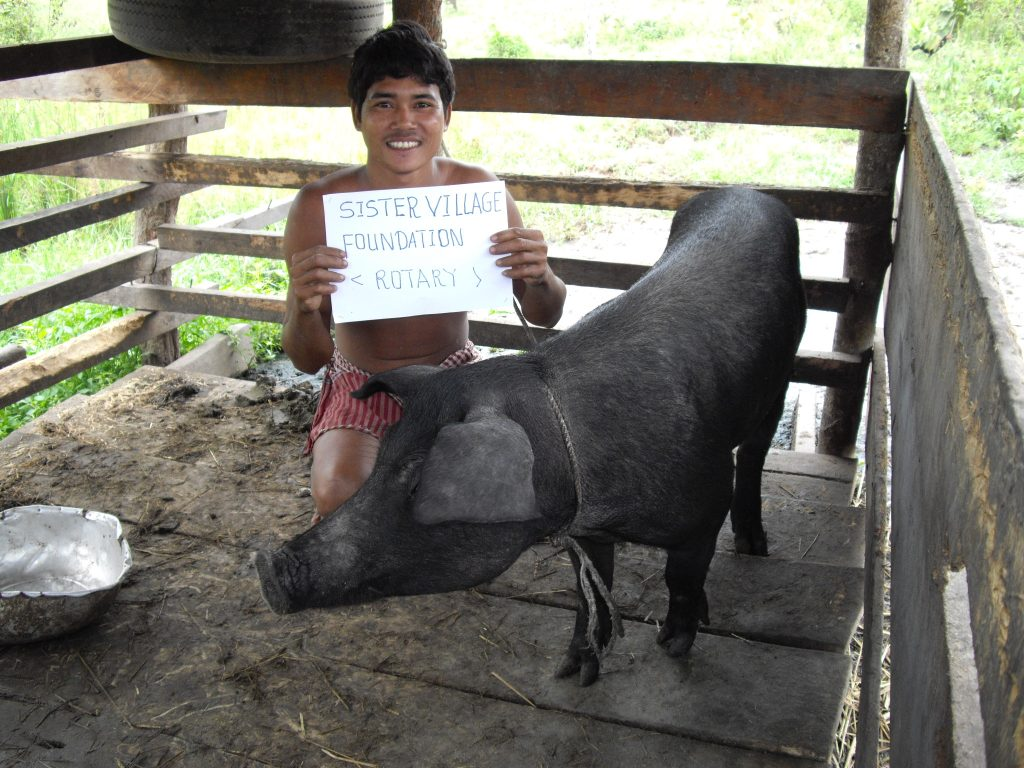 SISTER VILLAGE
FOUNDATION
< ROTARY >